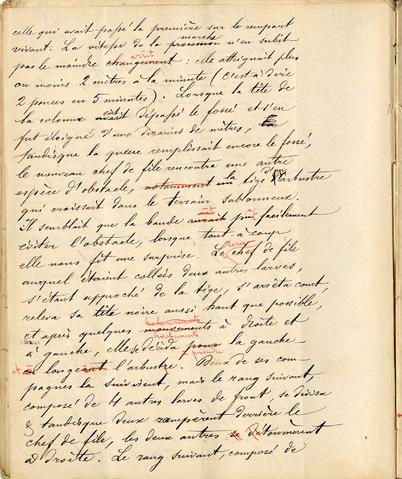 celle qui avait passé la première sur le rempart
vivant. La vitesse de la procession n'en subit
marche
pas le moindre changement : elle atteignait plus
arrêt
ou moins 2 mètres à la minute (c'est à dire
2 pouces en 5 minutes). Lorsque la tête de
la colonne avait dépassé le fossé et s'en
eût
fut éloigné d'une dizaine de mètres,
tandisque la queue remplissait encore le fossé,
le nouveau chef de file rencontra une autre
espèce d'obstacle, notamment la tige d'arbustre
qui croissait dans le terrain sablonneux.
Il semblait que la bande aurait pu facilement
éviter l'obstacle, lorsque tout à coup
elle nous fit une surprise. Le chef de file
auquel étaient collés deux autres larves,
s'étant approché de la tige, s'arrêta court,
releva sa tête noire aussi haut que possible,
et après quelques mouvements à droite et
à gauche, elle se décida pour la gauche
longeant l'arbustre. Deux de ses com-
pagnes la suivirent, mais le rang suivant,
composé de 4 autres larves de front, se divisa
& tandisque deux rampèrent derrière le
chef de file, les deux autres se détournèrent
à droite. Le rang suivant, composé de